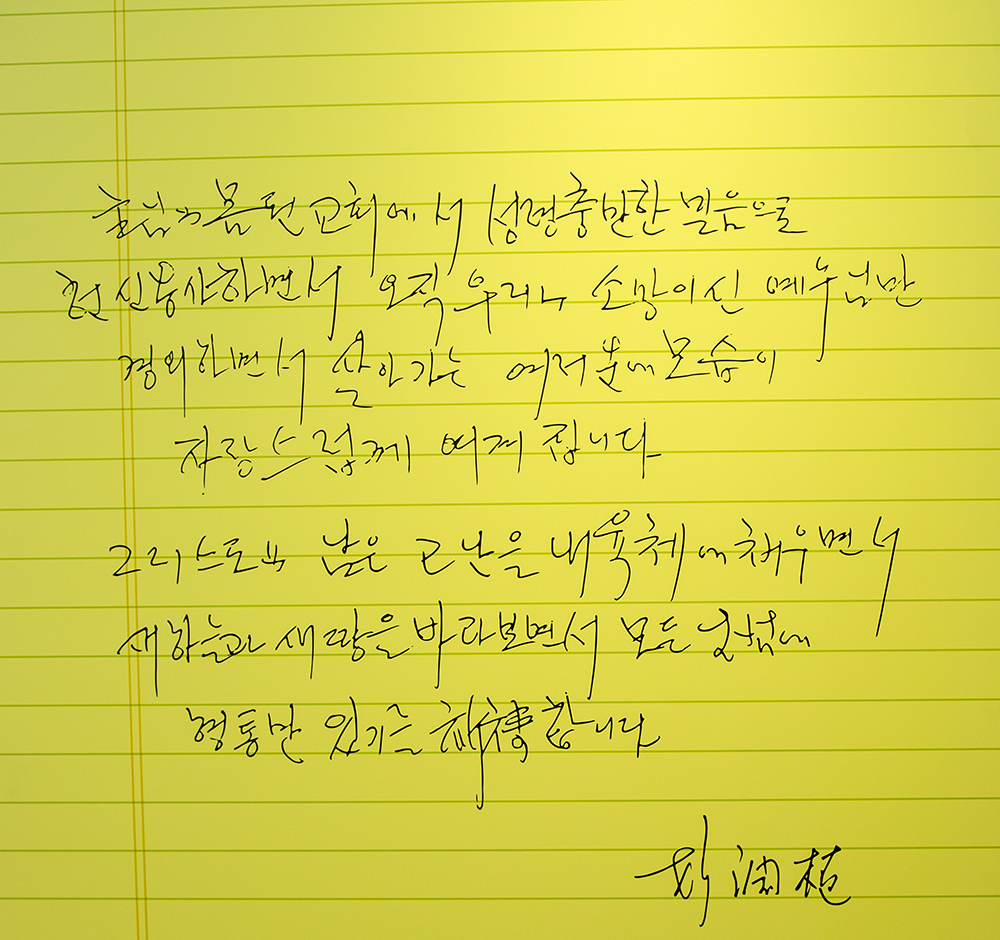 주님의 몸된 교회에서 성령충만한 믿음으로
헌신봉사하면서 오직 우리의 소망이신 예수님만
경외하면서 살아가는 여러분에 모습이
자랑스럽게 여겨 집니다
그리스도의 남은 고난을 내육체에 채우면서
새하늘과 새땅을 바라보면서 모든 일에
형통만 있기를 祈禱합니다